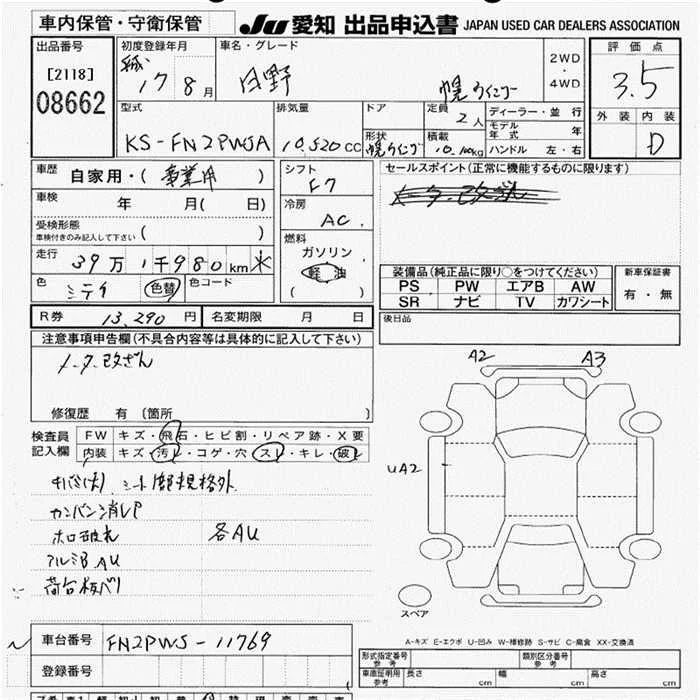 車内保管・守衛保管 JU 愛知 出品申込書 JAPAN USED CAR DEALERS ASSOCIATION
出品番号 [2118] 08662
初度登録年月 17 8月
車名・グレード 日野 幌ウイング
2WD・4WD
評価点 3.5
外装 内装 D
型式 KS-FN2PWJA
排気量 10,520CC
ドア
形状 幌ウイング
定員 2人
積載 10,100kg
ディーラー・並行
モデル年式 年
ハンドル 左・右
車歴 自家用・(事業用)
車検 年 月( 日)
受検形態 車検付きのみ記入して下さい ( )
走行 39万1千980km
色 色替 色コード
シフト F7
冷房 AC
燃料 ガソリン 軽油 ( )
セールスポイント(正常に機能するものに限ります)
装備品(純正品に限り○をつけてください)
PS PW エアB AW
SR ナビ TV カワシート
新車保証書 有・無
Rカ券 13,290円 名変期限 月 日
後日品
注意事項申告欄(不具合内容等は具体的に記入して下さい)
メーター改ざん
修復歴 有〔箇所 〕
検査員記入欄
FW キズ・飛石・ヒビ割・リペア跡・X要
内装 キズ・汚レ・コゲ・穴・スレ・キレ・破レ
シート部規格外
カンバン消しP
ホロ破れ 各AU
アルミB AU
荷台板バリ
A2 A3
UA2
スペア
A-キズ E-エクボ U-凹み W-補修跡 S-サビ C-腐食 XX-交換済
車台番号 FN2PWJ-11769
登録番号
形式指定番号 参考 類別区分番号 参考
車庫証明用 参考 長さ cm 幅 cm 高さ cm